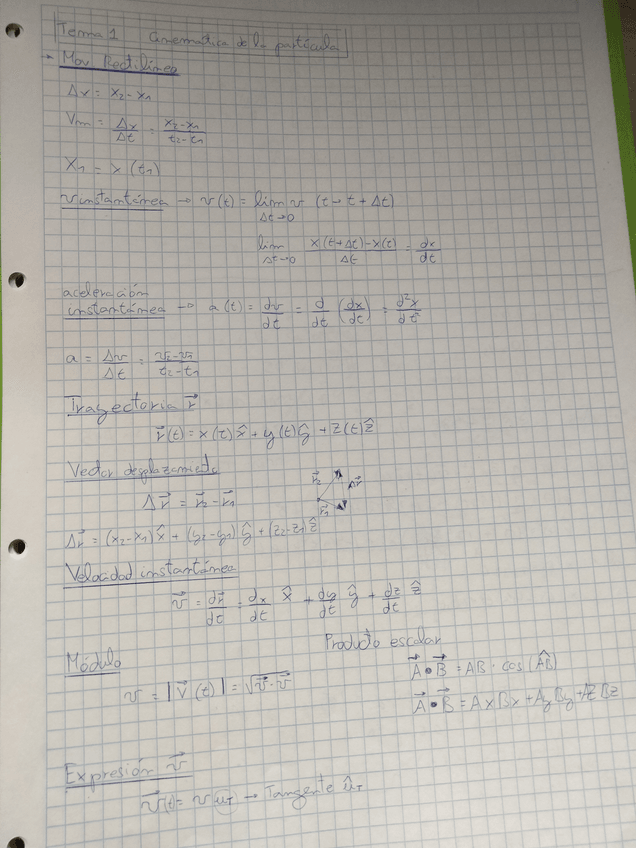 Tema 1 Cinemática de la partícula
→ Mov Rectilíneo
Δx = x₂-x₁
Vm = Δx/Δt = (x₂-x₁)/(t₂-t₁)
X₁ = x (t₁)
v instantánea → v(t) = lim v (t→t+Δt)
Δt→0
lim Δt→0 (x(t+Δt)-x(t))/Δt = dx/dt
aceleración
instantánea → a(t) = dv/dt = d/dt (dx/dt) = d²x/dt²
a = Δv/Δt = (v₂-v₁)/(t₂-t₁)
Trayectoria r⃗
r⃗(t) = x(t)x̂ + y(t)ŷ + z(t)ẑ
Vector desplazamiento
Δr⃗ = r⃗₂-r⃗₁
r⃗₂ Δr⃗
r⃗₁
Δr⃗ = (x₂-x₁)x̂ + (y₂-y₁)ŷ + (z₂-z₁)ẑ
Velocidad instantánea
v⃗ = dr⃗/dt = dx/dt x̂ + dy/dt ŷ + dz/dt ẑ
Módulo
v = |v⃗(t)| = √(v⃗·v⃗)
Producto escalar
A⃗•B⃗ = AB·cos(AB̂)
A⃗•B⃗ = AxBx+AyBy+AzBz
Expresión v⃗
v⃗(t) = v u_T → Tangente û_T